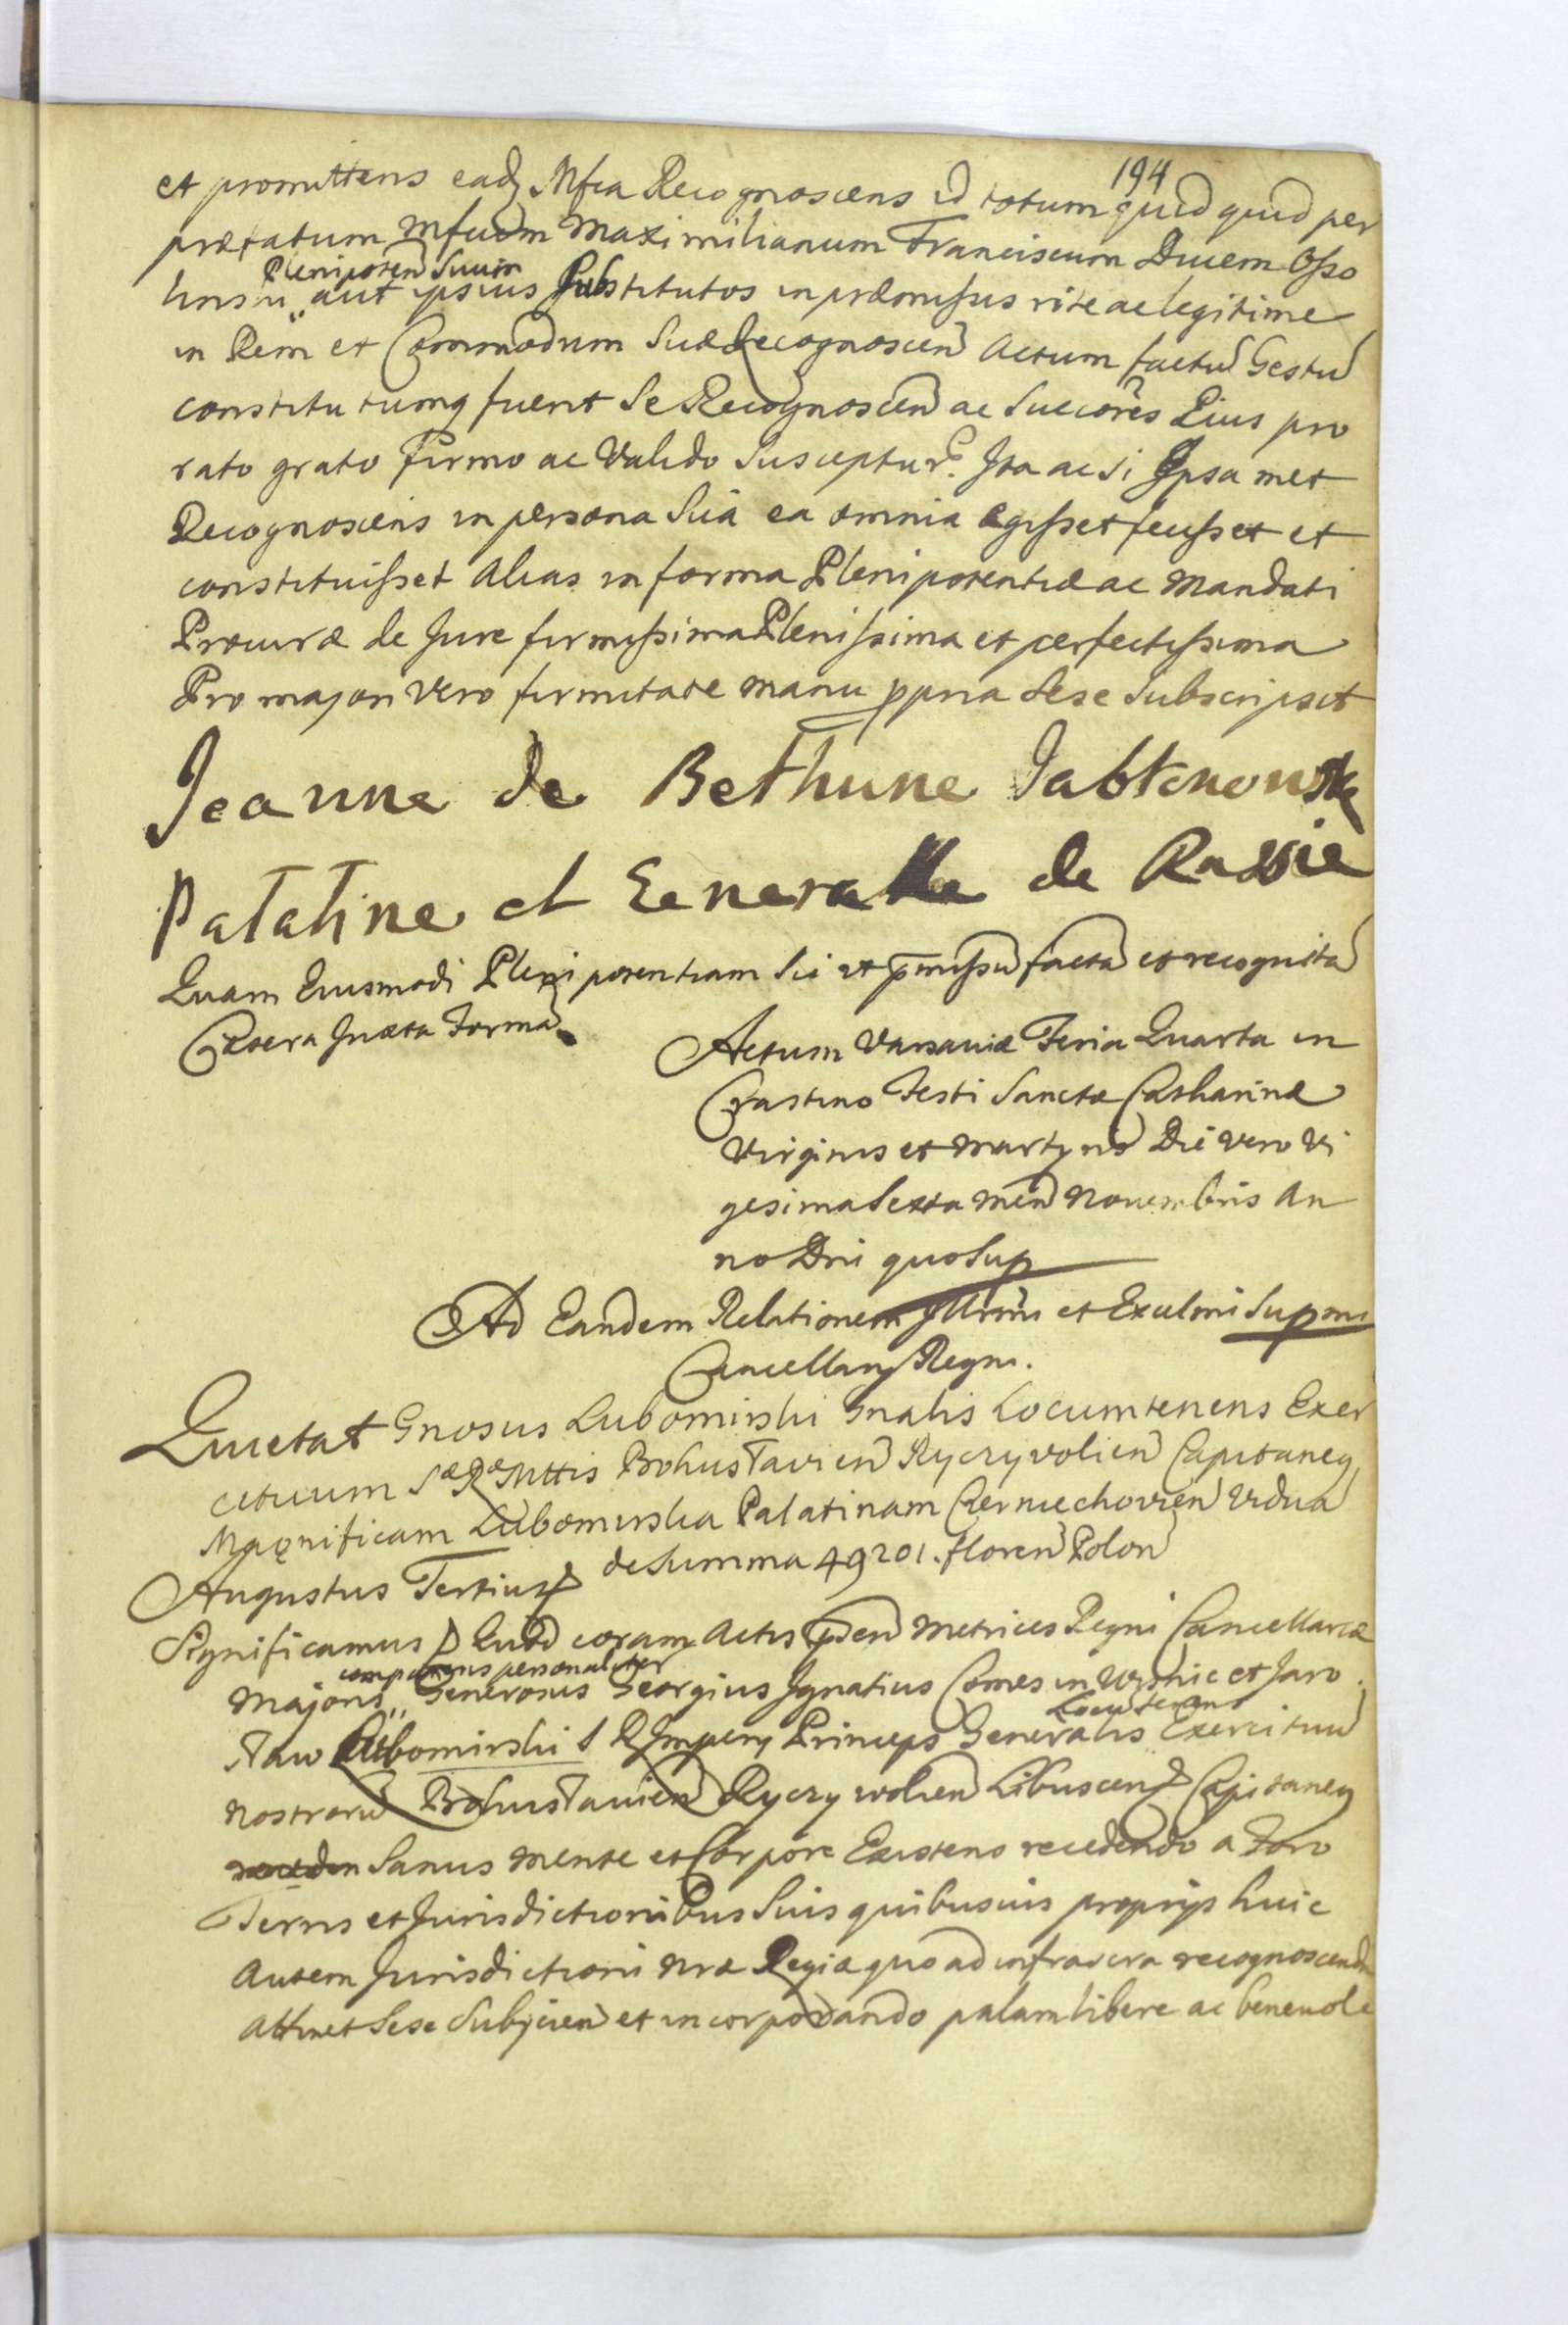 194
et promittens eadq Mfca Recognoscens id totum quid quid per
præfatum Mfucdm Maximilianum Franciscum Ducem Osso
Plenipoten Suum
linski aut ipsius Substitutos in præmissis rite ac legitime
in Rem et Commodum Suæ Recognoscen Actum factu Gestu
constitutumq fuerit Se Recognoscen ac Succores Eius pro
rato grato firmo ac Valido Suscеptur. Ita ac Si Ipsa met
Recognoscens in persona Sua ea omnia egisset fecisset et
constituisset Alias in forma Plenipotentiæ ac Mandati
Procuræ de Jure firmissima Plenissima et perfectissima
Pro majori Vero firmitate manu ppria Sese Subscripsit
Jeanne de Bethune Jabtonouska
Palatine et Generalle de Russie
Quam Eiusmodi Plenipotentiam Sic ut pmissu facta et recognita
Cætera Juxta Forma
Actum Varsaviæ Feria Quarta in
Crastino Festi Sanctæ Catharinæ
Virginis et Martyris Die Vero Vi
gesima Sexta Men Novembris An
no Dni quo Sup
Ad Eandem Relationem Illrmi et Excelmi Supmi
Cancellarij Regni.
Quietat Gnosus Lubomirski Gnalis Locumtenens Exer
cituum Sæ Ræ Mttis Bohuslavien Ryczyvolien Capitaneq
Magnificam Lubomirska Palatinam Czerniechovien Vidua
de Summa 49201. floren Polon
Augustus Tertius
Significamus Quod coram Actis pden Metrices Regni Cancellariæ
comparens personaliter
Majoris Generosus Georgius Ignatius Comes in Wisnic et Jaro
Locu tenens
slaw Lubomirski S R Impery Princeps Generalis Exercituu
nostroru Bohuslavien Ryczywolien Libuscenq Capitaneq
Sanus mente et Corpore Existens recedendo a Foro
Terris et Jurisdictionibus Suis quibusvis proprijs huic
Autem Jurisdictioni nræ Regiæ quo ad infrascra recognoscenda
Attinet Sese Subjicien et incorporando palam libere ac benevole